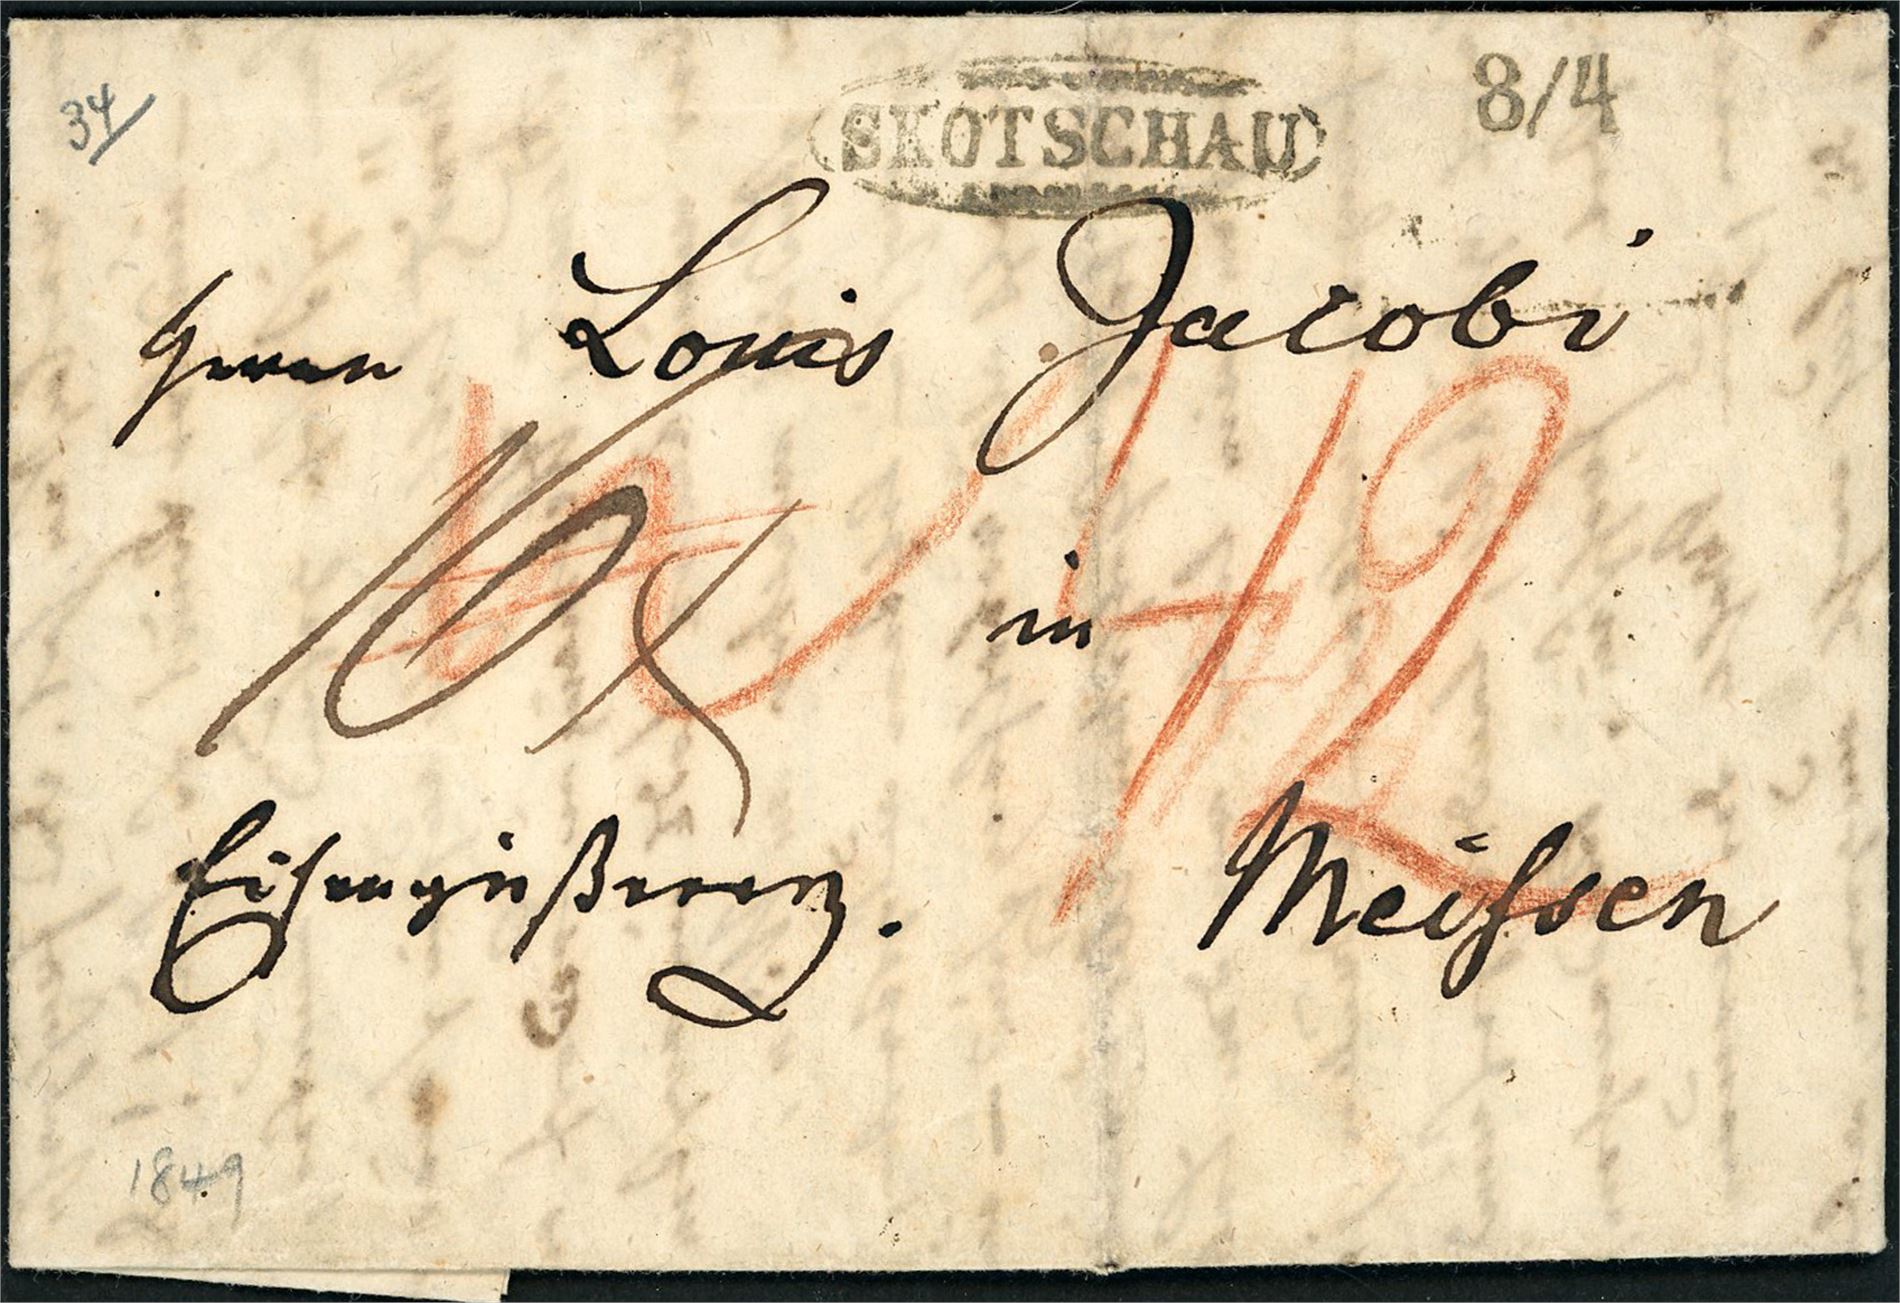 34
SKOTSCHAU
8/4
Herrn Louis Jacobi
in
Eisengießerey.
Meißen
12
1849